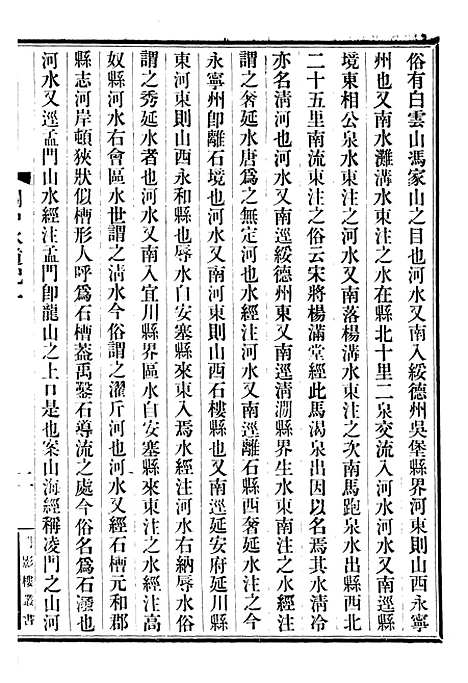 俗有白雲山馮家山之目也河水又南入綏德州吳堡縣界河東則山西永寧
州也又南水灘溝水東注之水在縣北十里二泉交流入河水河水又南逕縣
境東相公泉水東注之河水又南落楊溝水東注之次南馬跑泉水出縣西北
二十五里南流東注之俗云宋將楊滿堂經此馬渴泉出因以名焉其水清冷
亦名清河也河水又南逕綏德州東又南逕清澗縣界生水東南注之水經注
謂之奢延水唐爲之無定河也水經注河水又南逕離石縣西奢延水注之今
永寧州卽離石境也河水又南河東則山西石樓縣也又南逕延安府延川縣
東河東則山西永和縣也辱水自安塞縣來東入焉水經注河水右納辱水俗
謂之秀延水者也河水又南入宜川縣界區水自安塞縣來東注之水經注高
奴縣河水右會區水世謂之清水今俗謂之濯斤河也河水又經石槽元和郡
縣志河岸頓狹狀似槽形人呼爲石槽葢禹鑿石導流之處今俗名爲石漫也
河水又逕孟門山水經注孟門卽龍山之上口是也案山海經稱凌門之山河
影樓叢書